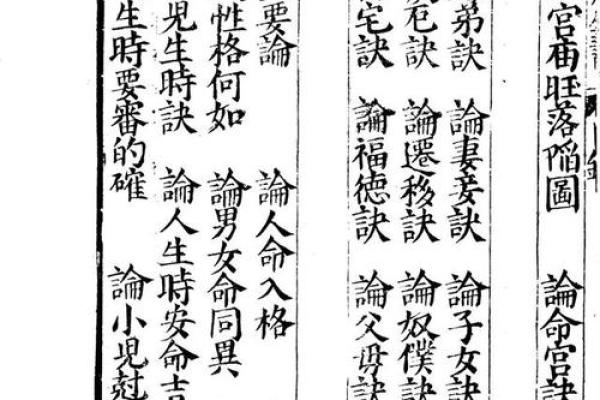 宮庙旺落陷圖 論命宮訣
弟訣 論妻妾訣 論子女訣
厄訣 論遷移訣 論奴僕訣
宅訣 論福德訣 論父母訣
要論 論人命入格
性格何如 論男女命同異
児生時訣 論人生時安命吉
生時要審的確 論小児尅